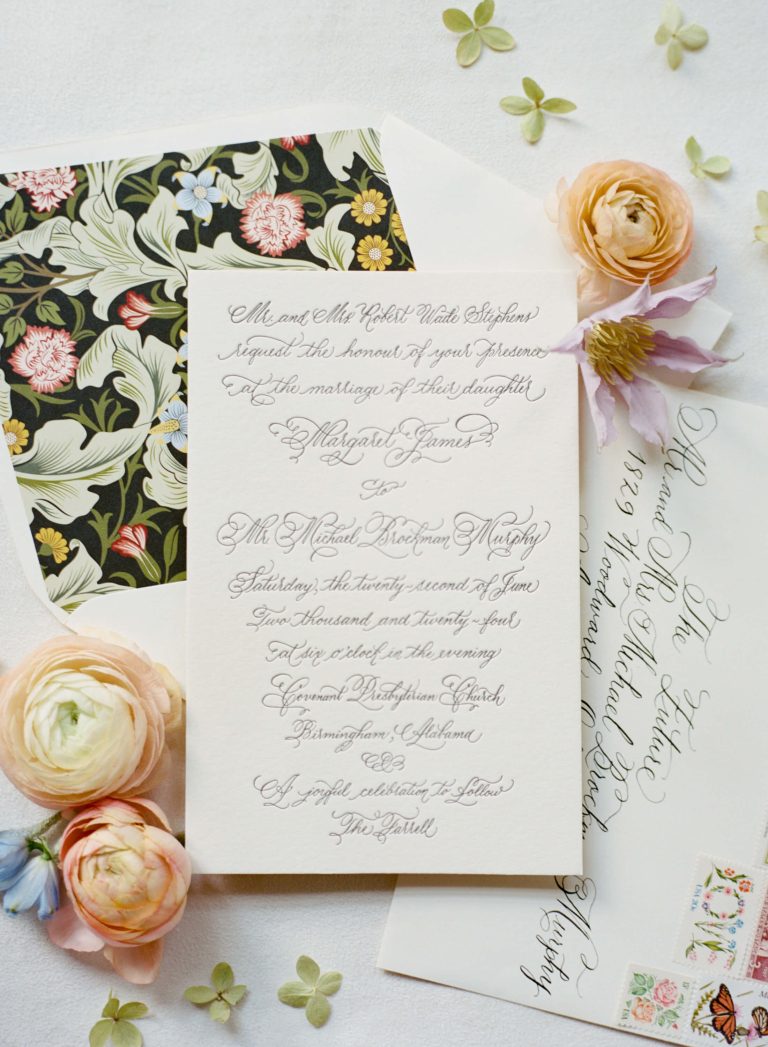 Mr. and Mrs. Robert Wade Stephens
request the honour of your presence
at the marriage of their daughter
Margaret James
to
Mr. Michael Brockman Murphy
Saturday, the twenty-second of June
Two thousand and twenty-four
at six o'clock in the evening
Covenant Presbyterian Church
Birmingham, Alabama
A joyful celebration to follow
The Farrell
The Future
Mr and Mrs Michael
Murphy
1829 Woodward
USA 20c
LOVE
USA